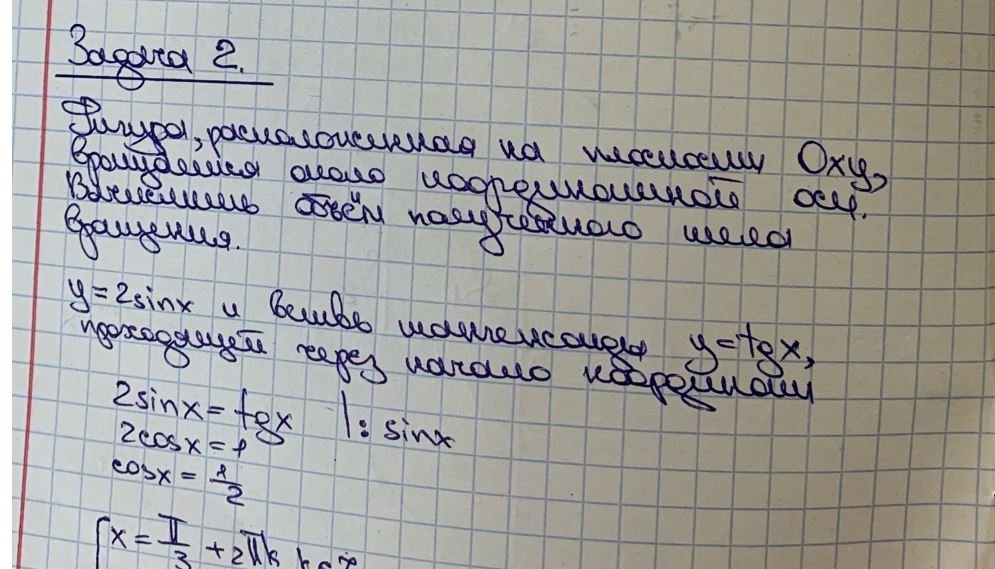 Задача 2.
Фигура, расположенная на плоскости Oxy,
вращается около координатной оси.
Вычислить объём полученного тела
вращения.
y=2sinx и ветвь тангенсоиды y=tgx,
проходящей через начало координат
2sinx = tgx |: sinx
2cosx = 1
cosx = 1/2
[x = π/3 + 2πk, k∈Z